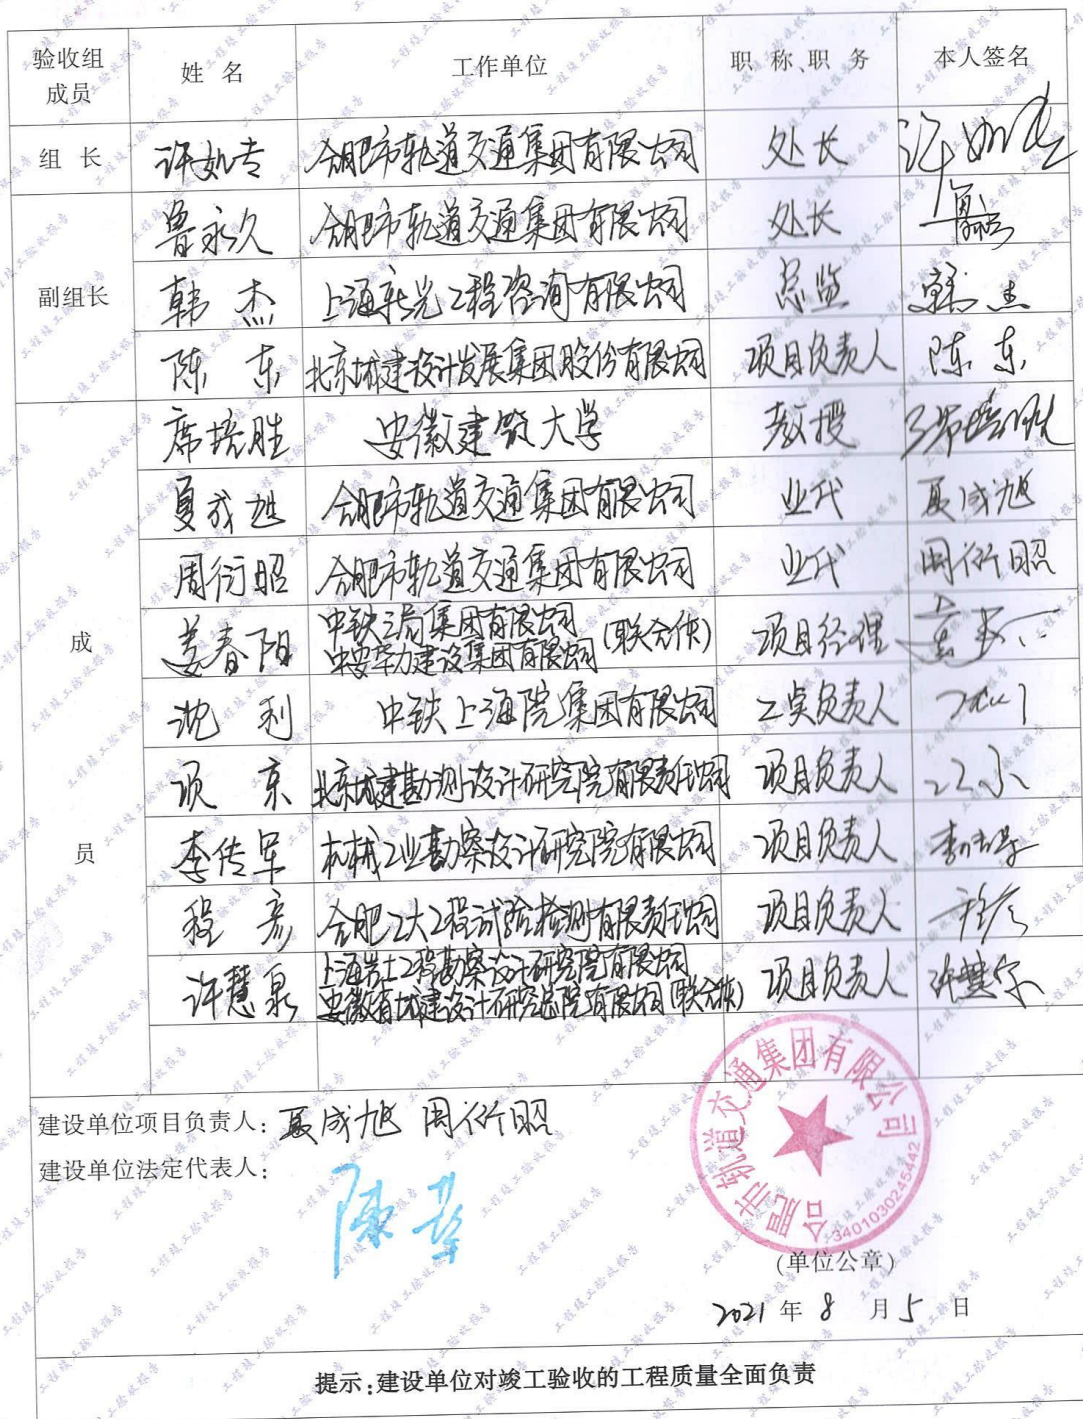 验收组成员 姓 名 工作单位 职 称、职 务 本人签名
组 长 许如专 合肥市轨道交通集团有限公司 处长
副组长 鲁永久 合肥市轨道交通集团有限公司 处长
韩 杰 上海新光工程咨询有限公司 总监 韩杰
陈 东 北京城建设计发展集团股份有限公司 项目负责人 陈 东
成员 席培胜 安徽建筑大学 教授 席培胜
夏成旭 合肥市轨道交通集团有限公司 业代 夏成旭
周衍昭 合肥市轨道交通集团有限公司 业代 周衍昭
姜春阳 中铁三局集团有限公司
中安华力建设集团有限公司(联合体) 项目经理
沈 利 中铁上海院集团有限公司 工点负责人
项 京 北京城建勘测设计研究院有限责任公司 项目负责人
李传军 机械工业勘察设计研究院有限公司 项目负责人
程 彦 合肥工大工程试验检测有限责任公司 项目负责人
许慧泉 上海岩土工程勘察设计研究院有限公司
安徽省城建设计研究总院有限公司(联合体) 项目负责人
建设单位项目负责人: 夏成旭 周衍昭
建设单位法定代表人:
合肥市轨道交通集团有限公司
3401030245442
(单位公章)
2021 年 8 月 5 日
提示:建设单位对竣工验收的工程质量全面负责
工程竣工验收报告